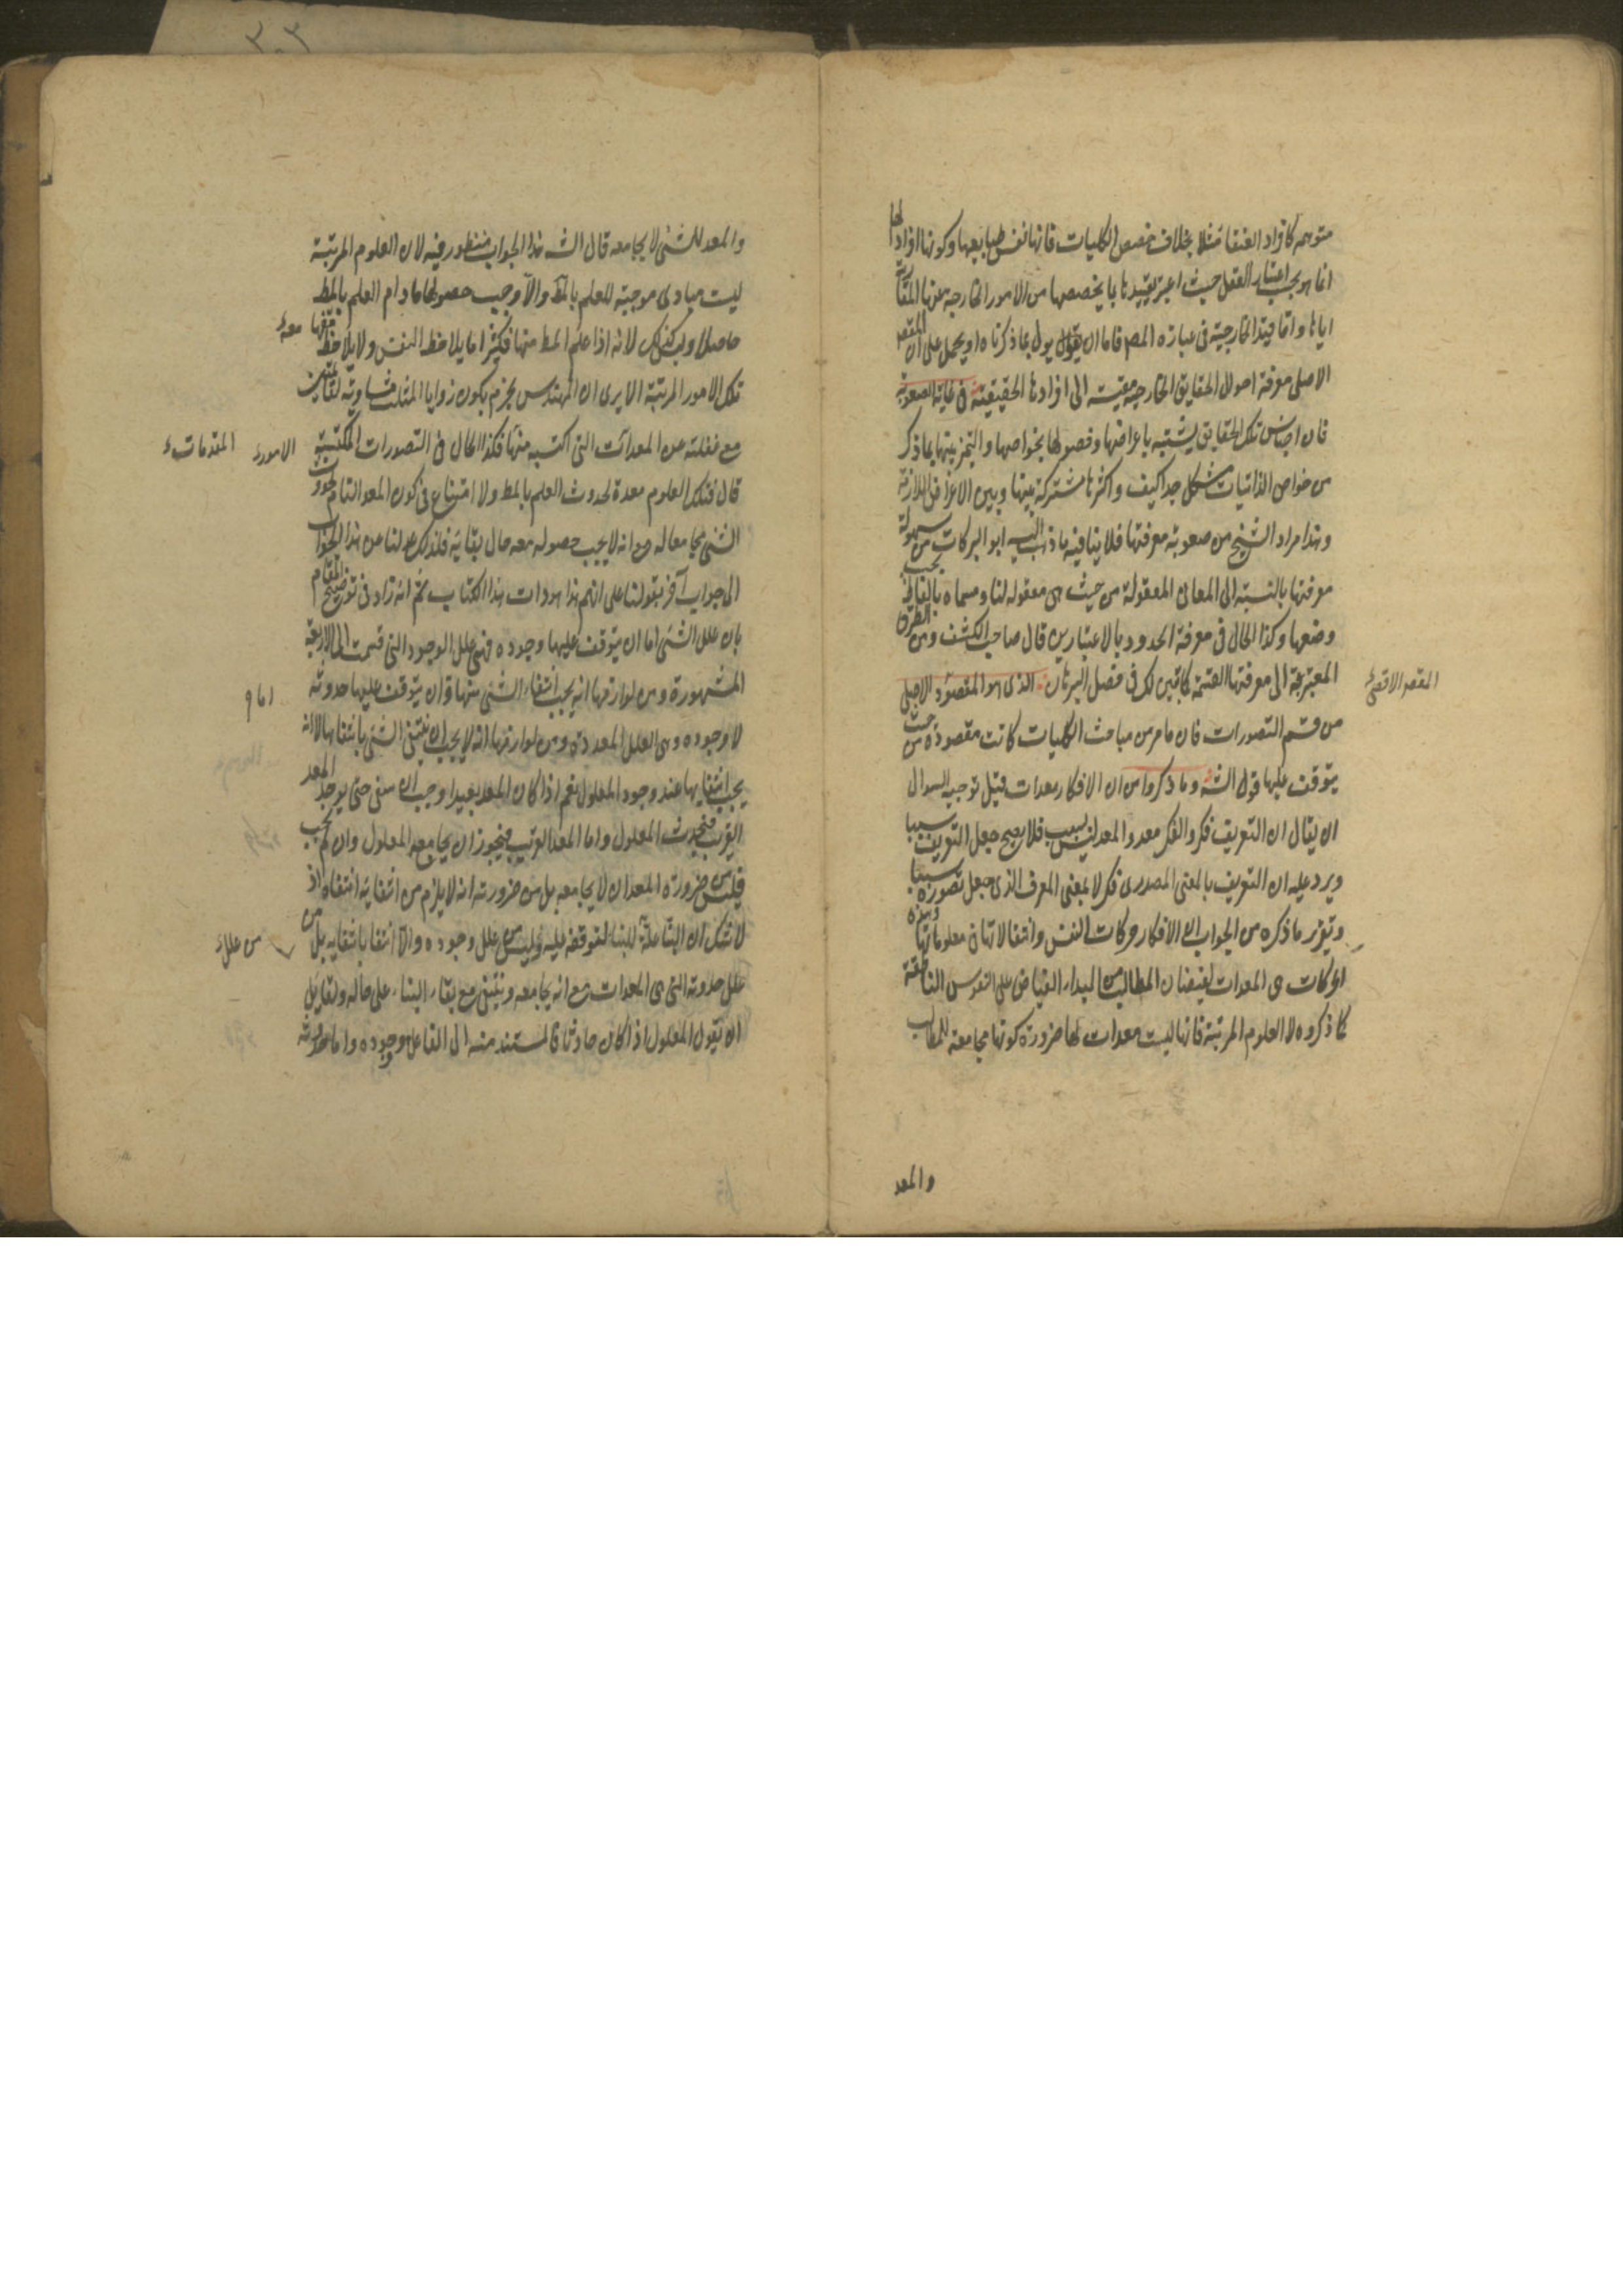 متوهمه كافراد العنقا مثلا بخلاف حصص الكليات فانها نفس طبايعها وكونها افرادا لها
انما هو بحسب اعتبار العقل حيث اعتبر تقييدها بما يخصصها من الامور الخارجة عنها المقارنة
اياها واما قيد الخارجية فى عبارة المصر فاما ان يقول يول بما ذكرناه او يحمل على ان المقصر
الاصلى معرفة احوال الحقايق الخارجية مقيسة الى افرادها الحقيقية فى غاية الصعوبة
فان اجناس تلك الحقايق يشتبه باعراضها وفصولها بخواصها والتميز بينها بما ذكر
من خواص الذاتيات مشكل جدا كيف واكثرها مشتركة بينها وبين الاعراض اللازمة
وهذا مراد الشيخ من صعوبة معرفتها فلا ينافيه ما ذهب اليه ابو البركات من سهولة
معرفتها بالنسبة الى المعانى المعقولة من حيث هى معقولة لنا ومسماه بالفاظ بحسب
وضعها وكذا الحال فى معرفة الحدود بالاعتبارين قال صاحب الكشف ومن الطرق
المعتبرة الى معرفتها القسمة كما تبين لك فى فصل البرهان الذى هو المقصود الاصلى
المقصر الاقصى
من قسم التصورات فان ما مر من مباحث الكليات كانت مقصودة من حيث
يتوقف عليها قول الشه وما ذكروا من ان الافكار معدات قيل توجيه السوال
ان يقال ان التعريف فكر والفكر معد والمعد ليس بسبب فلا يصح جعل التعريف سببا
ويرد عليه ان التعريف بالمعنى المصدرى فكر لا بمعنى المعرف الذى جعل تصوره سببا
وتقرير ما ذكره من الجواب ان الافكار حركات النفس وانتقالاتها فى معلوماتها وهذه
الحركات هى المعدات لفيضان المطالب من المبدا الفياض على النفوس الناطقة
كما ذكروه لا العلوم المرتبة فانها ليست معدات لها ضرورة كونها مجامعة للمطالب
والمعد
والمعد للشئ لا يجامعه قال الشه هذا الجواب منظور فيه لان العلوم المرتبة
ليست مبادى موجبة للعلم بالمط والا وجب حصولها ما دام العلم بالمط
حاصلا وليس كذلك لانه اذا علم المط منها فكثيرا ما يلاحظ النفس ولا يلاحظ معه
تلك الامور المرتبة الا يرى ان المهندس يجزم بكون زوايا المثلث مساوية لقائمتين
مع غفلته عن المعدات التى اكتسبه منها فكذا الحال فى التصورات المكتسبة
الامور المقدمات
قال فتلك العلوم معدة لحدوث العلم بالمط ولا امتناع فى كون المعد التام لحدوث
الشئ مجامعا له مع انه لا يجب حصوله معه حال بقايه فلذلك عدلنا عن هذا الجواب
الى جواب آخر بقولنا على انهم هذا سودات هذا الكتاب ثم انه زاد فى توضيح المقام
بان علل الشئ اما ان يتوقف عليها وجوده فهى علل الوجود التى قسمت الى الاربعة
المشهورة ومن لوازمها انه يجب انتفاء الشئ منها وان يتوقف عليها حدوثه
لا وجوده وهى العلل المعدة ومن لوازمها انه لا يجب ان ينتفى الشئ بانتفايها لا انه
يجب انتفايها عند وجود المعلول نعم اذا كان المعد بعيدا وجب ان ينتفى حتى يوجد المعد
القريب فيحدث المعلول واما المعد القريب فيجوز ان يجامعه المعلول وان لم يجب
فليس من ضرورة المعد ان لا يجامعه بل من ضرورته انه لا يلزم من انتفايه انتفاه اذ
لا شك ان البنا علة للبناء لتوقفه عليه وليس من علل وجوده والا انتفا بانتفايه بل من
من علل
علل حدوثه التى هى المعدات مع انه يجامعه وينتفى مع بقاء البناء على حاله ولقايل
ان يقول المعلول اذا كان حادثا فالمستند منه الى الفاعل وجوده واما حدوثه